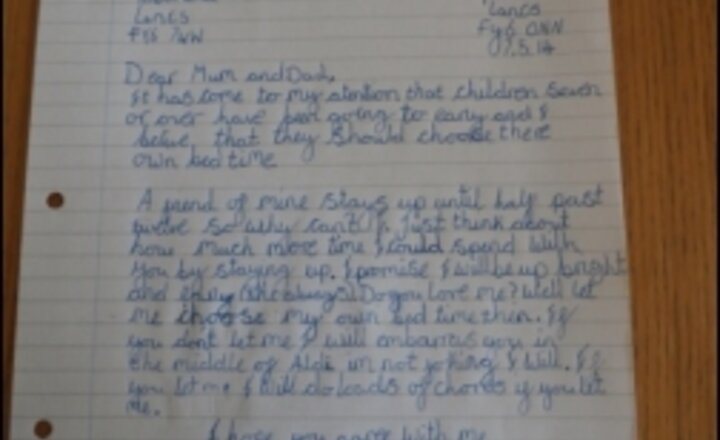 Lancs
Lancs
FY6 0NN
Dear Mum and Dad,
It has come to my atention that children seven
or over have been going to early and I
belive that they should choose there
own bed time
A friend of mine stays up until half past
twelve so why cant I. Just think about
how much more time I could spend with
you by staying up. I promise I will be up bright
and Do you love me? Well let
me choose my own bed time then. If
you dont let me I will embarras you in
the middle of Aldi, im not joking I will. If
you let me I will do loads of chores if you let
me.
I hope you agree with me